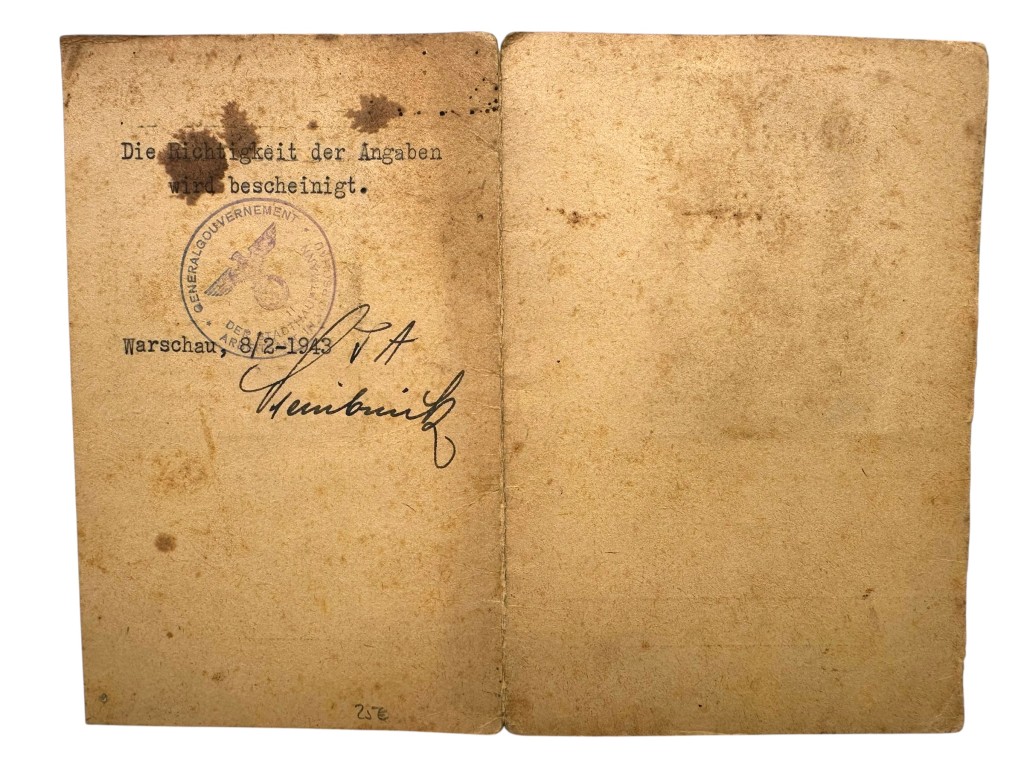 Die Richtigkeit der Angaben
wird bescheinigt.
GENERALGOUVERNEMENT
DER STADTHAUPTMANN
Warschau, 8/2-1943
25€